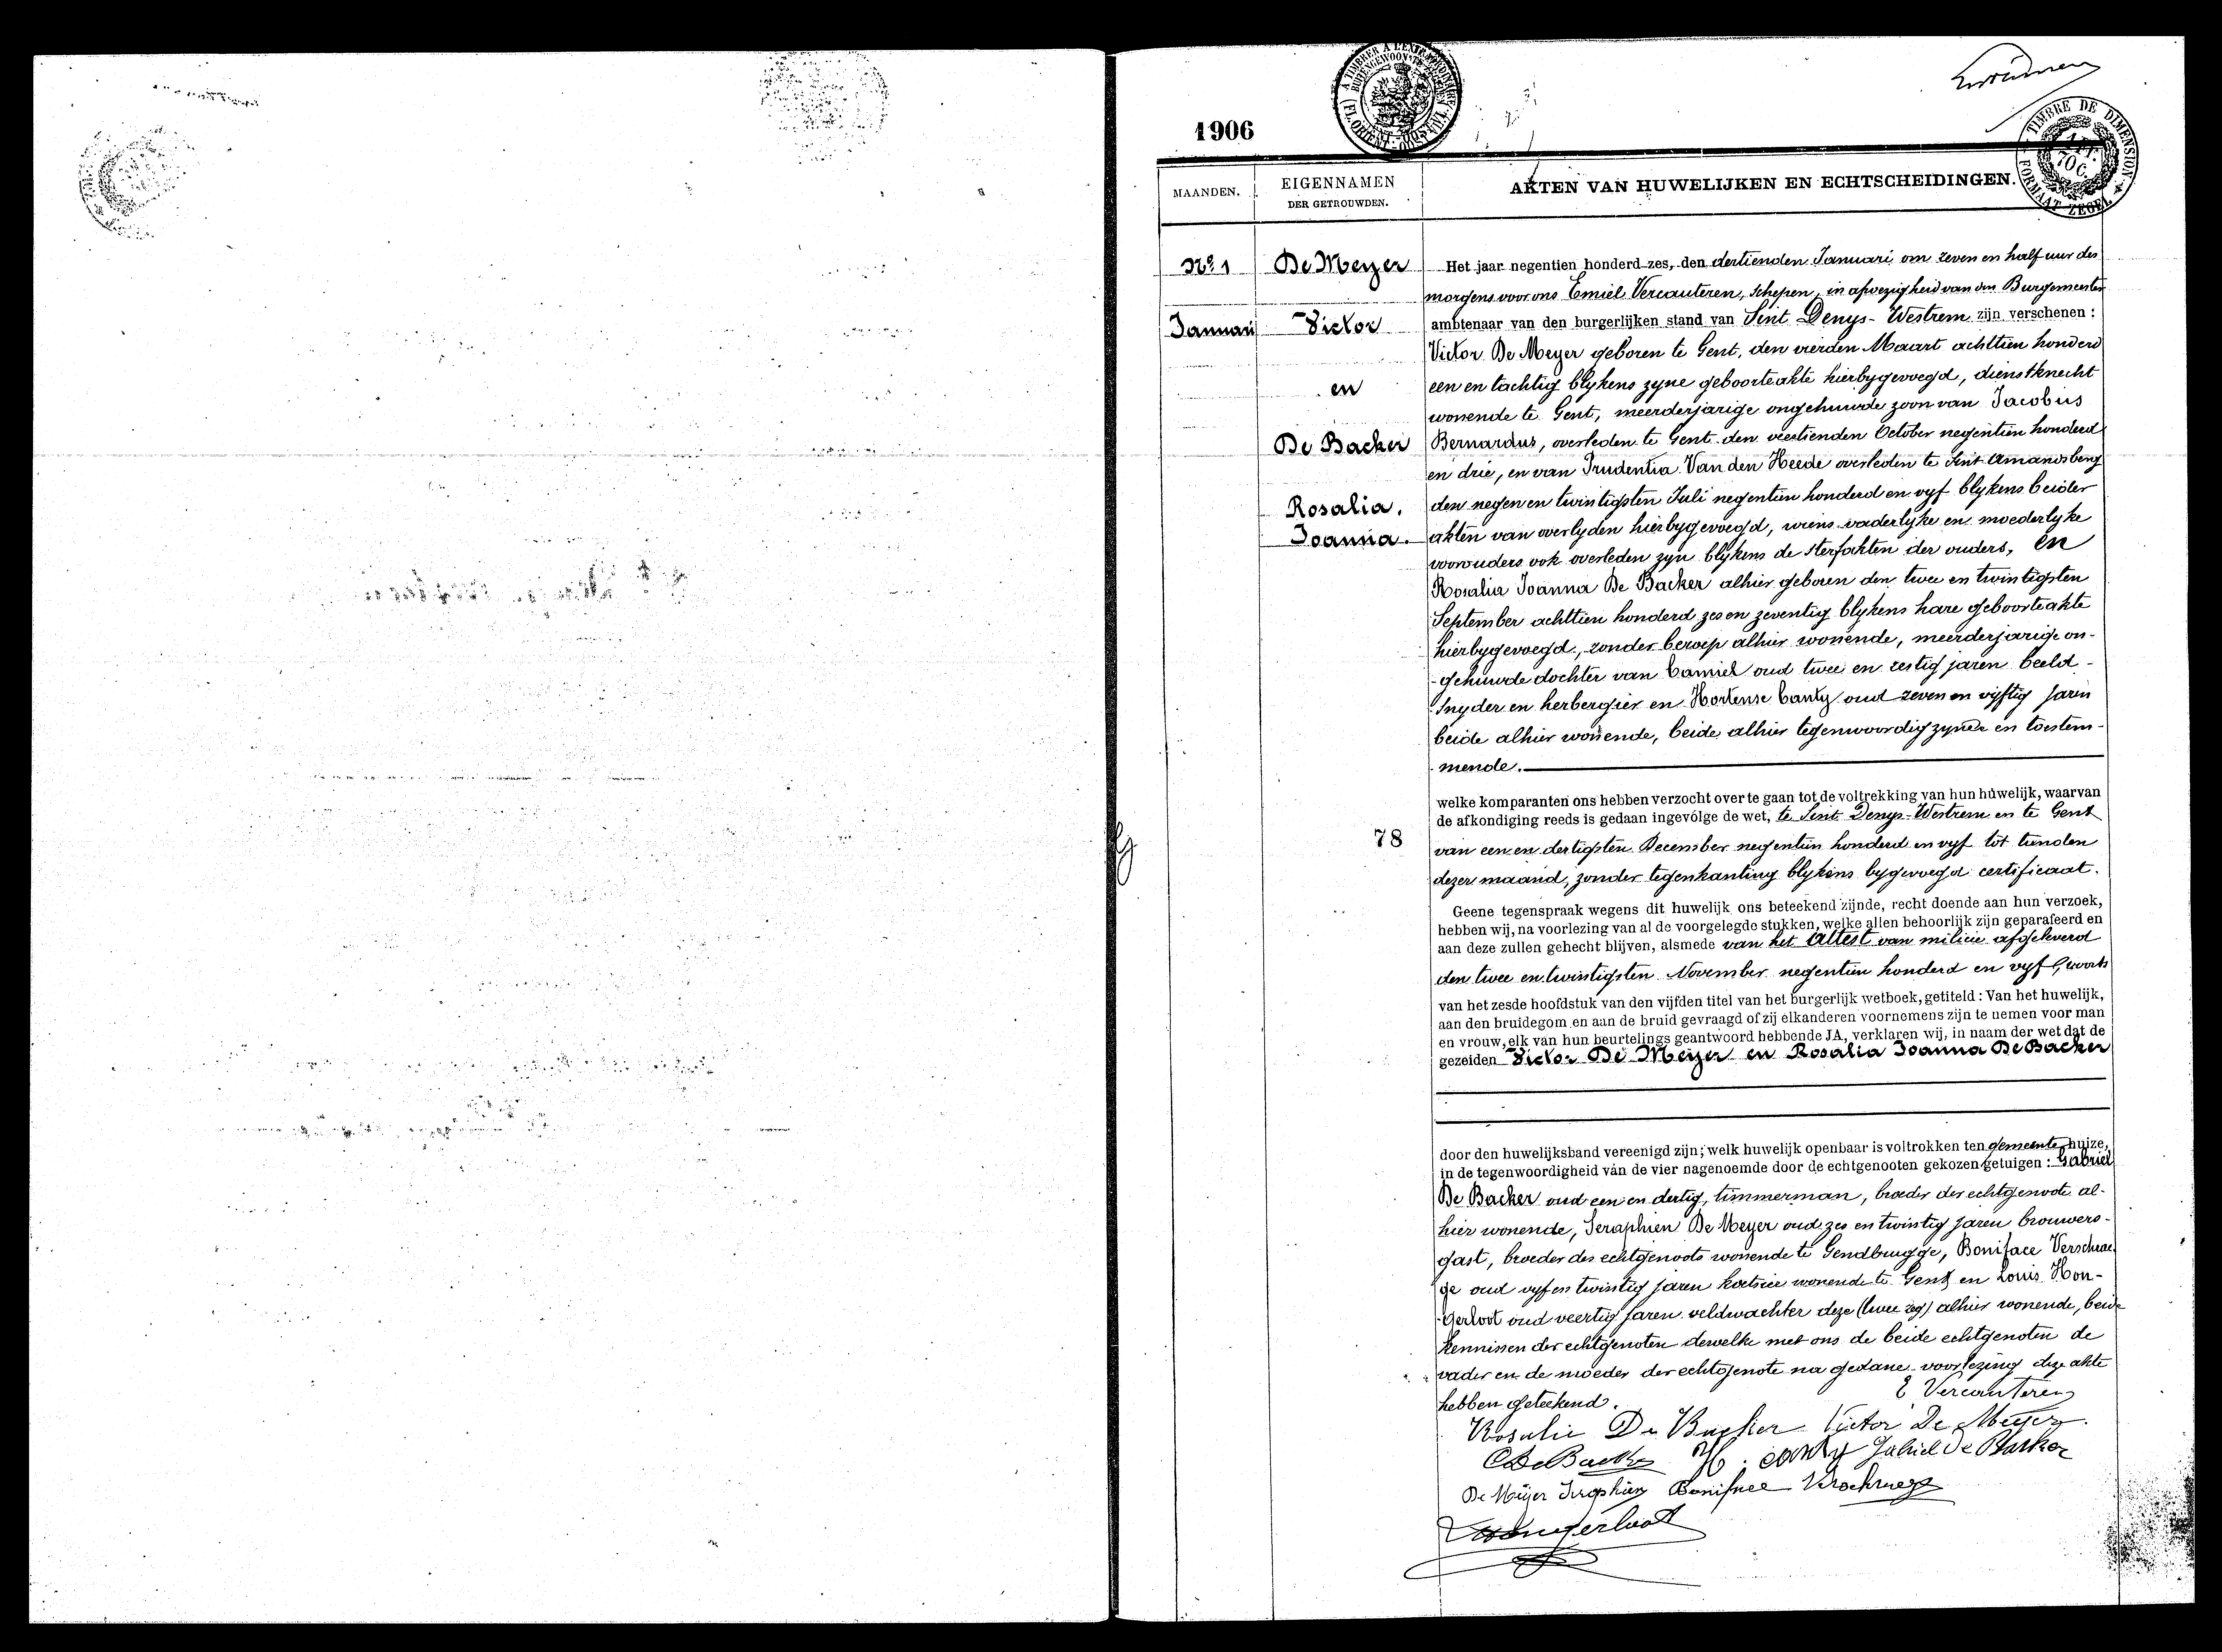 1906
MAANDEN.
EIGENNAMEN
DER GETROUWDEN.
AKTEN VAN HUWELIJKEN EN ECHTSCHEIDINGEN.
TIMBRE DE DIMENSION
FORMAAT ZEGEL
Nº 1
Januari
De Meyer
Victor
en
De Backer
Rosalia.
Joanna.
Het jaar negentien honderd zes, den dertienden Januari om zeven en half uur des
morgens voor ons Emiel Vercauteren, Schepen, in afwezigheid van den Burgemeester
ambtenaar van den burgerlijken stand van Sint Denys-Westrem zijn verschenen :
Victor De Meyer geboren te Gent, den vierden Maart achttien honderd
een en tachtig blykens zyne geboorteakte hierbygevoegd, dienstknecht
wonende te Gent, meerderjarige ongehuwde zoon van Jacobus
Bernardus, overleden te Gent den veertienden October negentien honderd
en drie, en van Prudentia Van den Heede overleden te Sint Amandsberg
den negen en twintigsten Juli negentien honderd en vyf blykens beider
akten van overlyden hierbygevoegd, wiens vaderlyke en moederlyke
voorouders ook overleden zyn blykens de sterfakten der ouders, en
Rosalia Joanna De Backer alhier geboren den twee en twintigsten
September achttien honderd zes en zeventig blykens hare geboorteakte
hierbygevoegd, zonder beroep alhier wonende, meerderjarige on-
-gehuwde dochter van Camiel oud twee en zestig jaren beeld-
Snyder en herbergier en Hortense Canty oud zeven en vijftig jaren
beide alhier wonende, beide alhier tegenwoordig zynde en toestem-
-mende.
welke komparanten ons hebben verzocht over te gaan tot de voltrekking van hun huwelijk, waarvan
de afkondiging reeds is gedaan ingevolge de wet, te Sint Denys-Westrem en te Gent
78
van een en dertigsten December negentien honderd en vyf tot tienden
dezer maand, zonder tegenkanting blykens bygevoegd certificaat.
Geene tegenspraak wegens dit huwelijk ons beteekend zijnde, recht doende aan hun verzoek,
hebben wij, na voorlezing van al de voorgelegde stukken, welke allen behoorlijk zijn geparafeerd en
aan deze zullen gehecht blijven, alsmede van het Attest van milicie afgeleverd
den twee en twintigsten November negentien honderd en vyf
van het zesde hoofdstuk van den vijfden titel van het burgerlijk wetboek, getiteld : Van het huwelijk,
aan den bruidegom en aan de bruid gevraagd of zij elkanderen voornemens zijn te nemen voor man
en vrouw, elk van hun beurtelings geantwoord hebbende JA, verklaren wij, in naam der wet dat de
gezeiden Victor De Meyer en Rosalia Joanna De Backer
door den huwelijksband vereenigd zijn; welk huwelijk openbaar is voltrokken ten gemeentehuize,
in de tegenwoordigheid van de vier nagenoemde door de echtgenooten gekozen getuigen : Gabriel
De Backer oud een en dertig, timmerman, broeder der echtgenoote al-
hier wonende, Seraphien De Meyer oud zes en twintig jaren brouwers-
gast, broeder des echtgenoots wonende te Gendbrugge, Boniface Verschrae
ge oud vyf en twintig jaren koetsier wonende te Gent en Louis Hon-
-gerloot oud veertig jaren veldwachter deze (twee zeg) alhier wonende, beide
kennissen der echtgenoten dewelke met ons de beide echtgenoten de
vader en de moeder der echtgenote na gedane voorlezing deze akte
hebben geteekend.
E Vercauteren
Rosalie De Backer Victor De Meyer
C De Backer H. Canty Gabriel De Backer
De Meijer Seraphien Boniface Verschraege
Hongerloot